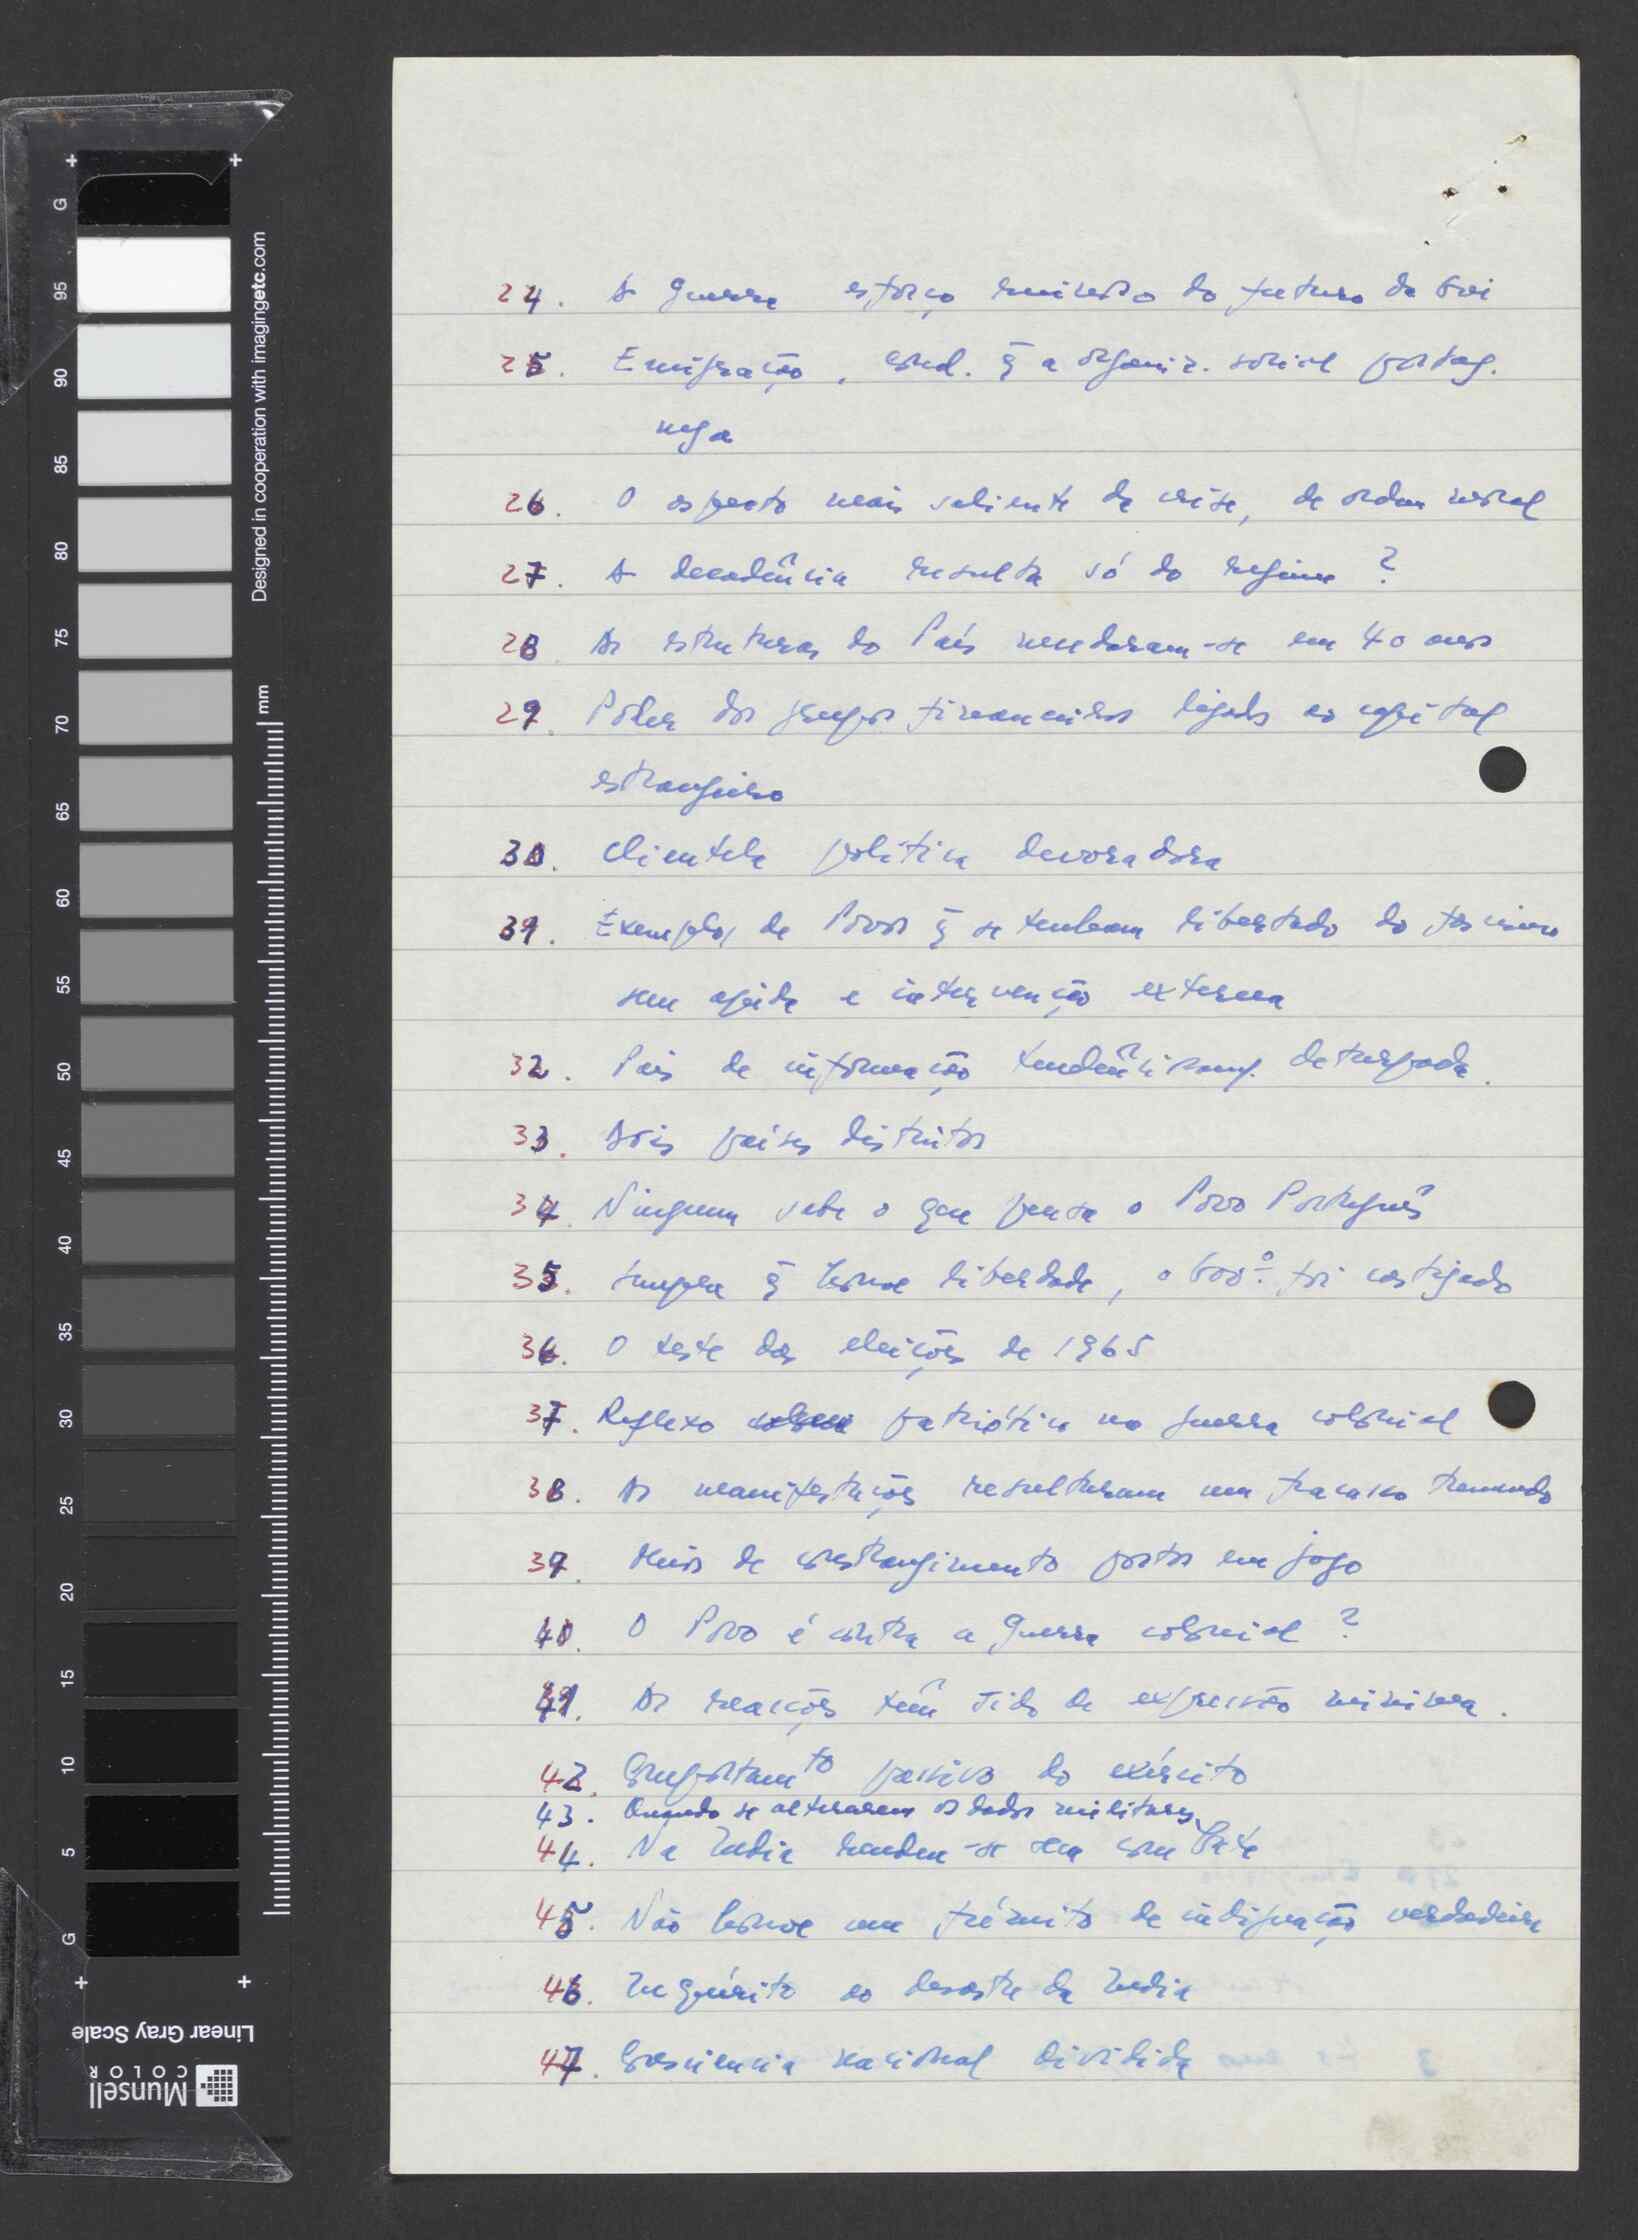 24. A guerra esforço ruinoso do futuro da
25. Emigração, cond. q̃ a organiz. social portug.
nega
26. O aspecto mais saliente da crise, de ordem moral
27. A decadência resulta só do regime ?
28. As estruturas do País mudaram-se em 40 anos
29. Poder dos grupos financeiros ligados ao capital
estrangeiro
30. Clientela política devoradora
31. Exemplos de Povos q̃ se tenham libertado do fascismo
sem ajuda e intervenção externa
32. País de informação deturpada.
33. Dois países distintos
34. Ninguem sabe o que pensa o Povo Português
35. Sempre q̃ houve liberdade, o foi castigado
36. O teste das eleições de 1965
37. Reflexo patriótico na guerra colonial
38. As manifestações resultaram um fracasso tremendo
39. Meios de constrangimento postos em jogo
40. O Povo é contra a guerra colonial ?
41. As reacções têm sido de expressão minima.
42. Comportamto passivo do exército
43. Quando se alterarem os dados militares
44. Na India rendem-se sem combate
45. Não houve um frémito de indignação verdadeira
46. Inquérito ao desastre da India
47. Consciencia nacional dividida
G 95 90 85 80 75 70 65 60 55 50 45 40 35 30 25 20 15 10 5 G
Designed in cooperation with imagingetc.com
mm
Linear Gray Scale
Munsell
COLOR